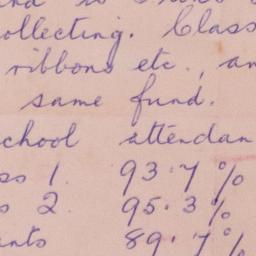 ollecting. Class
ribbons etc., an
same fund.
chool attendan
ss 1. 93.7%
s 2. 95.3%
nts 89.7%